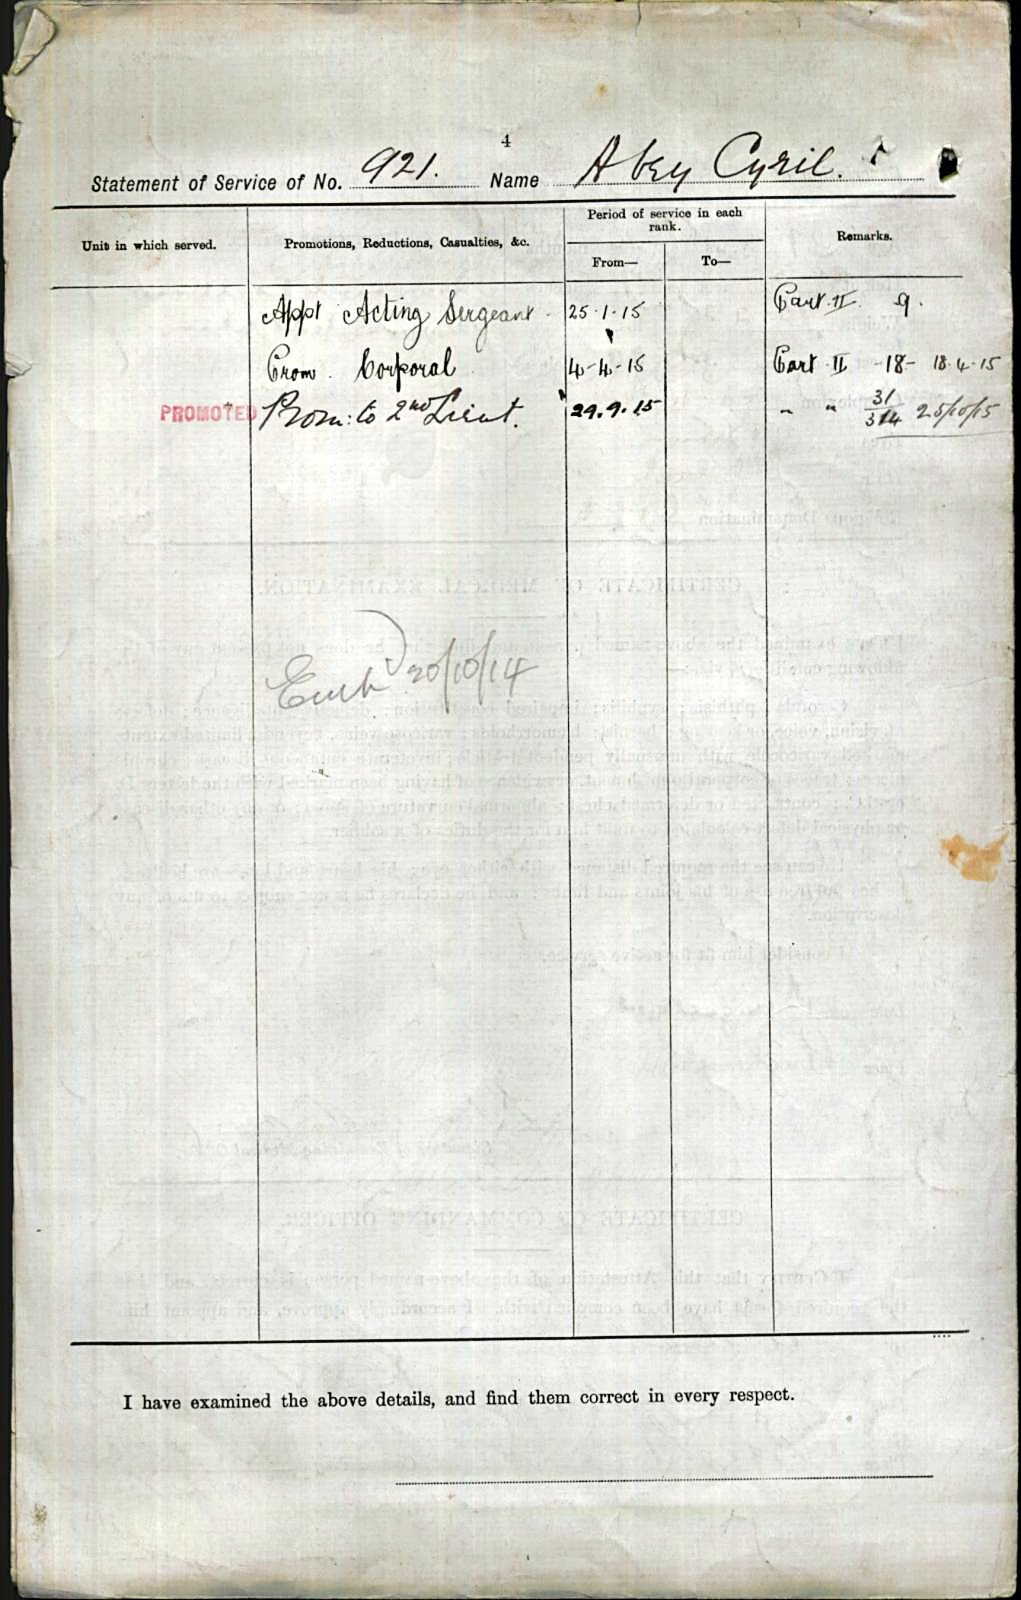 4
Statement of Service of No. 921. Name Abey Cyril.
Unit in which served.
Promotions, Reductions, Casualties, &c.
Period of service in each rank.
From—
To—
Remarks.
Appt Acting Sergeant 25.1.15 Part II 9.
Prom. Corporal 4-4-15 Part II -18- 18.4.15
PROMOTED Prom: to 2nd Lieut. 29.9.15 " " 31/314 25/10/15
Emb 20/10/14
I have examined the above details, and find them correct in every respect.